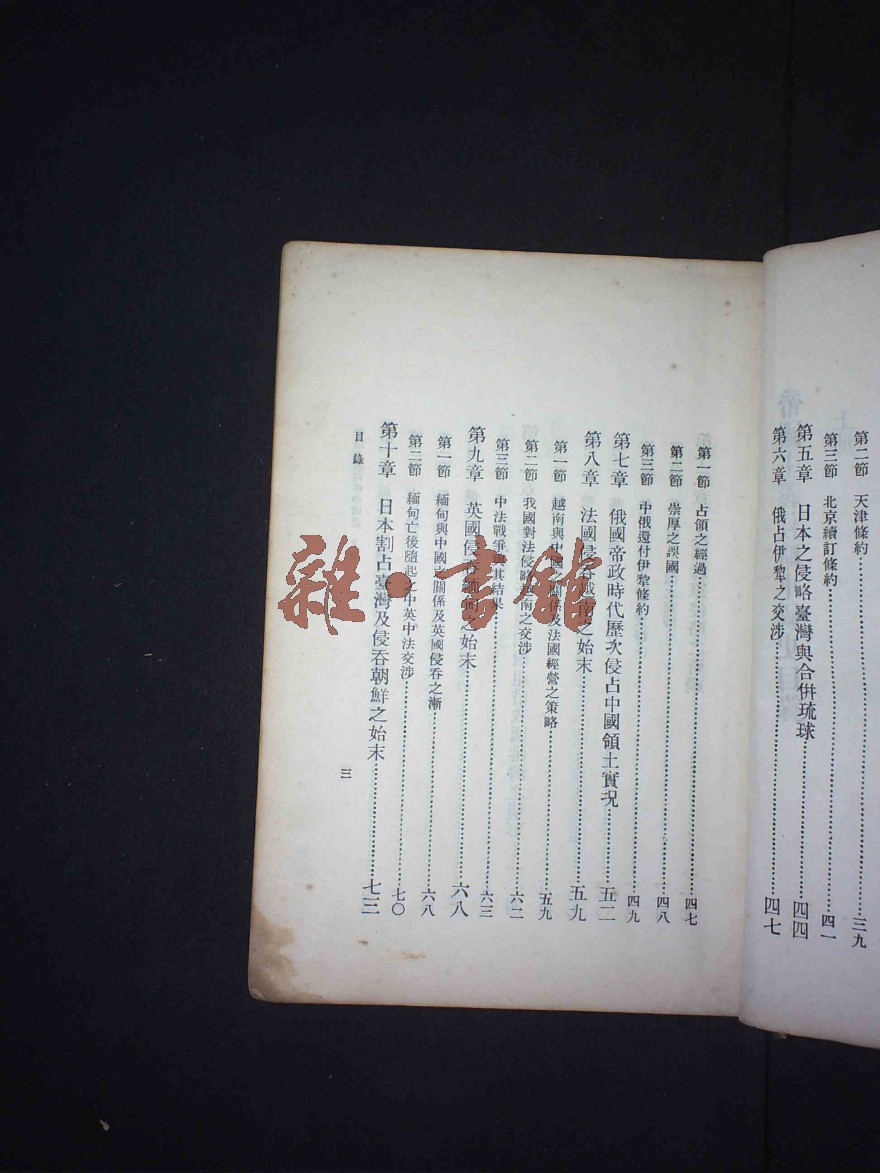 第二節 天津條約……三九
第三節 北京續訂條約……四一
第五章 日本之侵略臺灣與合併琉球……四四
第六章 俄占伊犂之交涉……四七
第一節 占領之經過……四七
第二節 崇厚之誤國……四八
第三節 中俄還付伊犂條約……四九
第七章 俄國帝政時代歷次侵占中國領土實況……五二
第八章 法國侵吞越南之始末……五九
第一節 越南與中國之關係及法國經營之策略……五九
第二節 我國對法侵略越南之交涉……六二
第三節 中法戰爭與其結果……六三
第九章 英國侵吞緬甸之始末……六八
第一節 緬甸與中國之關係及英國侵吞之漸……六八
第二節 緬甸亡後隨起之中英中法交涉……七〇
第十章 日本割占臺灣及侵吞朝鮮之始末……七三
目錄
三
雜·書館